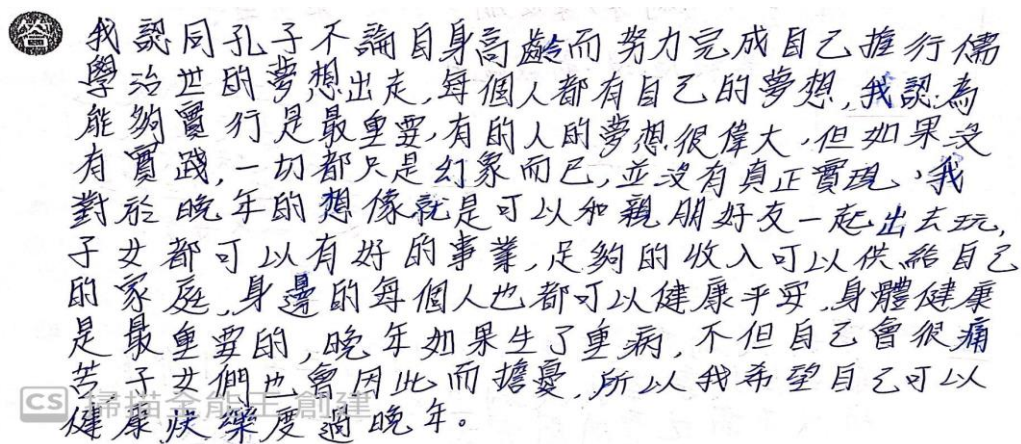 答
我認同孔子不論自身高齡而努力完成自己推行儒
學治世的夢想出走,每個人都有自己的夢想,我認為
能夠實行是最重要,有的人的夢想很偉大,但如果沒
有實踐,一切都只是幻象而已,並沒有真正實現,我
對於晚年的想像就是可以和親朋好友一起出去玩,
子女都可以有好的事業,足夠的收入可以供給自己
的家庭,身邊的每個人也都可以健康平安,身體健康
是最重要的,晚年如果生了重病,不但自己會很痛
苦子女們也會因此而擔憂,所以我希望自己可以
健康快樂度過晚年。
CS 掃描全能王 創建